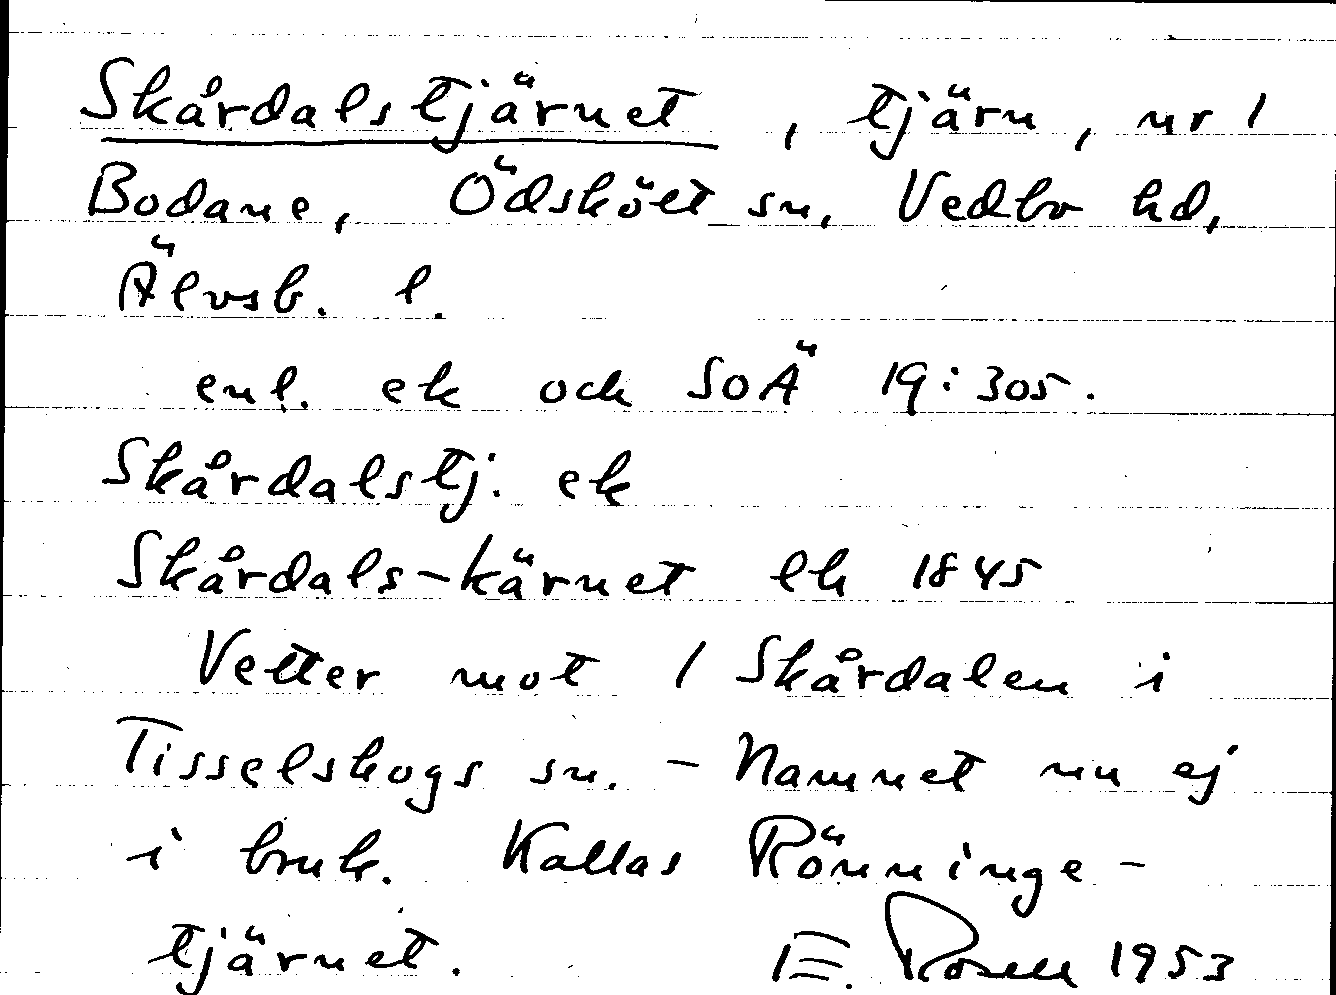 Skårdalstjärnet, tjärn, nr 1
Bodane, Ödskölt sn, Vedbo hd,
Älvsb. l.
enl. ek och SOÄ 19:305.
Skårdalstj. ek
Skårdals-kärnet ek 1845
Vetter mot 1 Skårdalen i
Tisselskogs sn. - Namnet nu ej
i bruk. Kallas Rönninge-
tjärnet. E. Rosell 1953